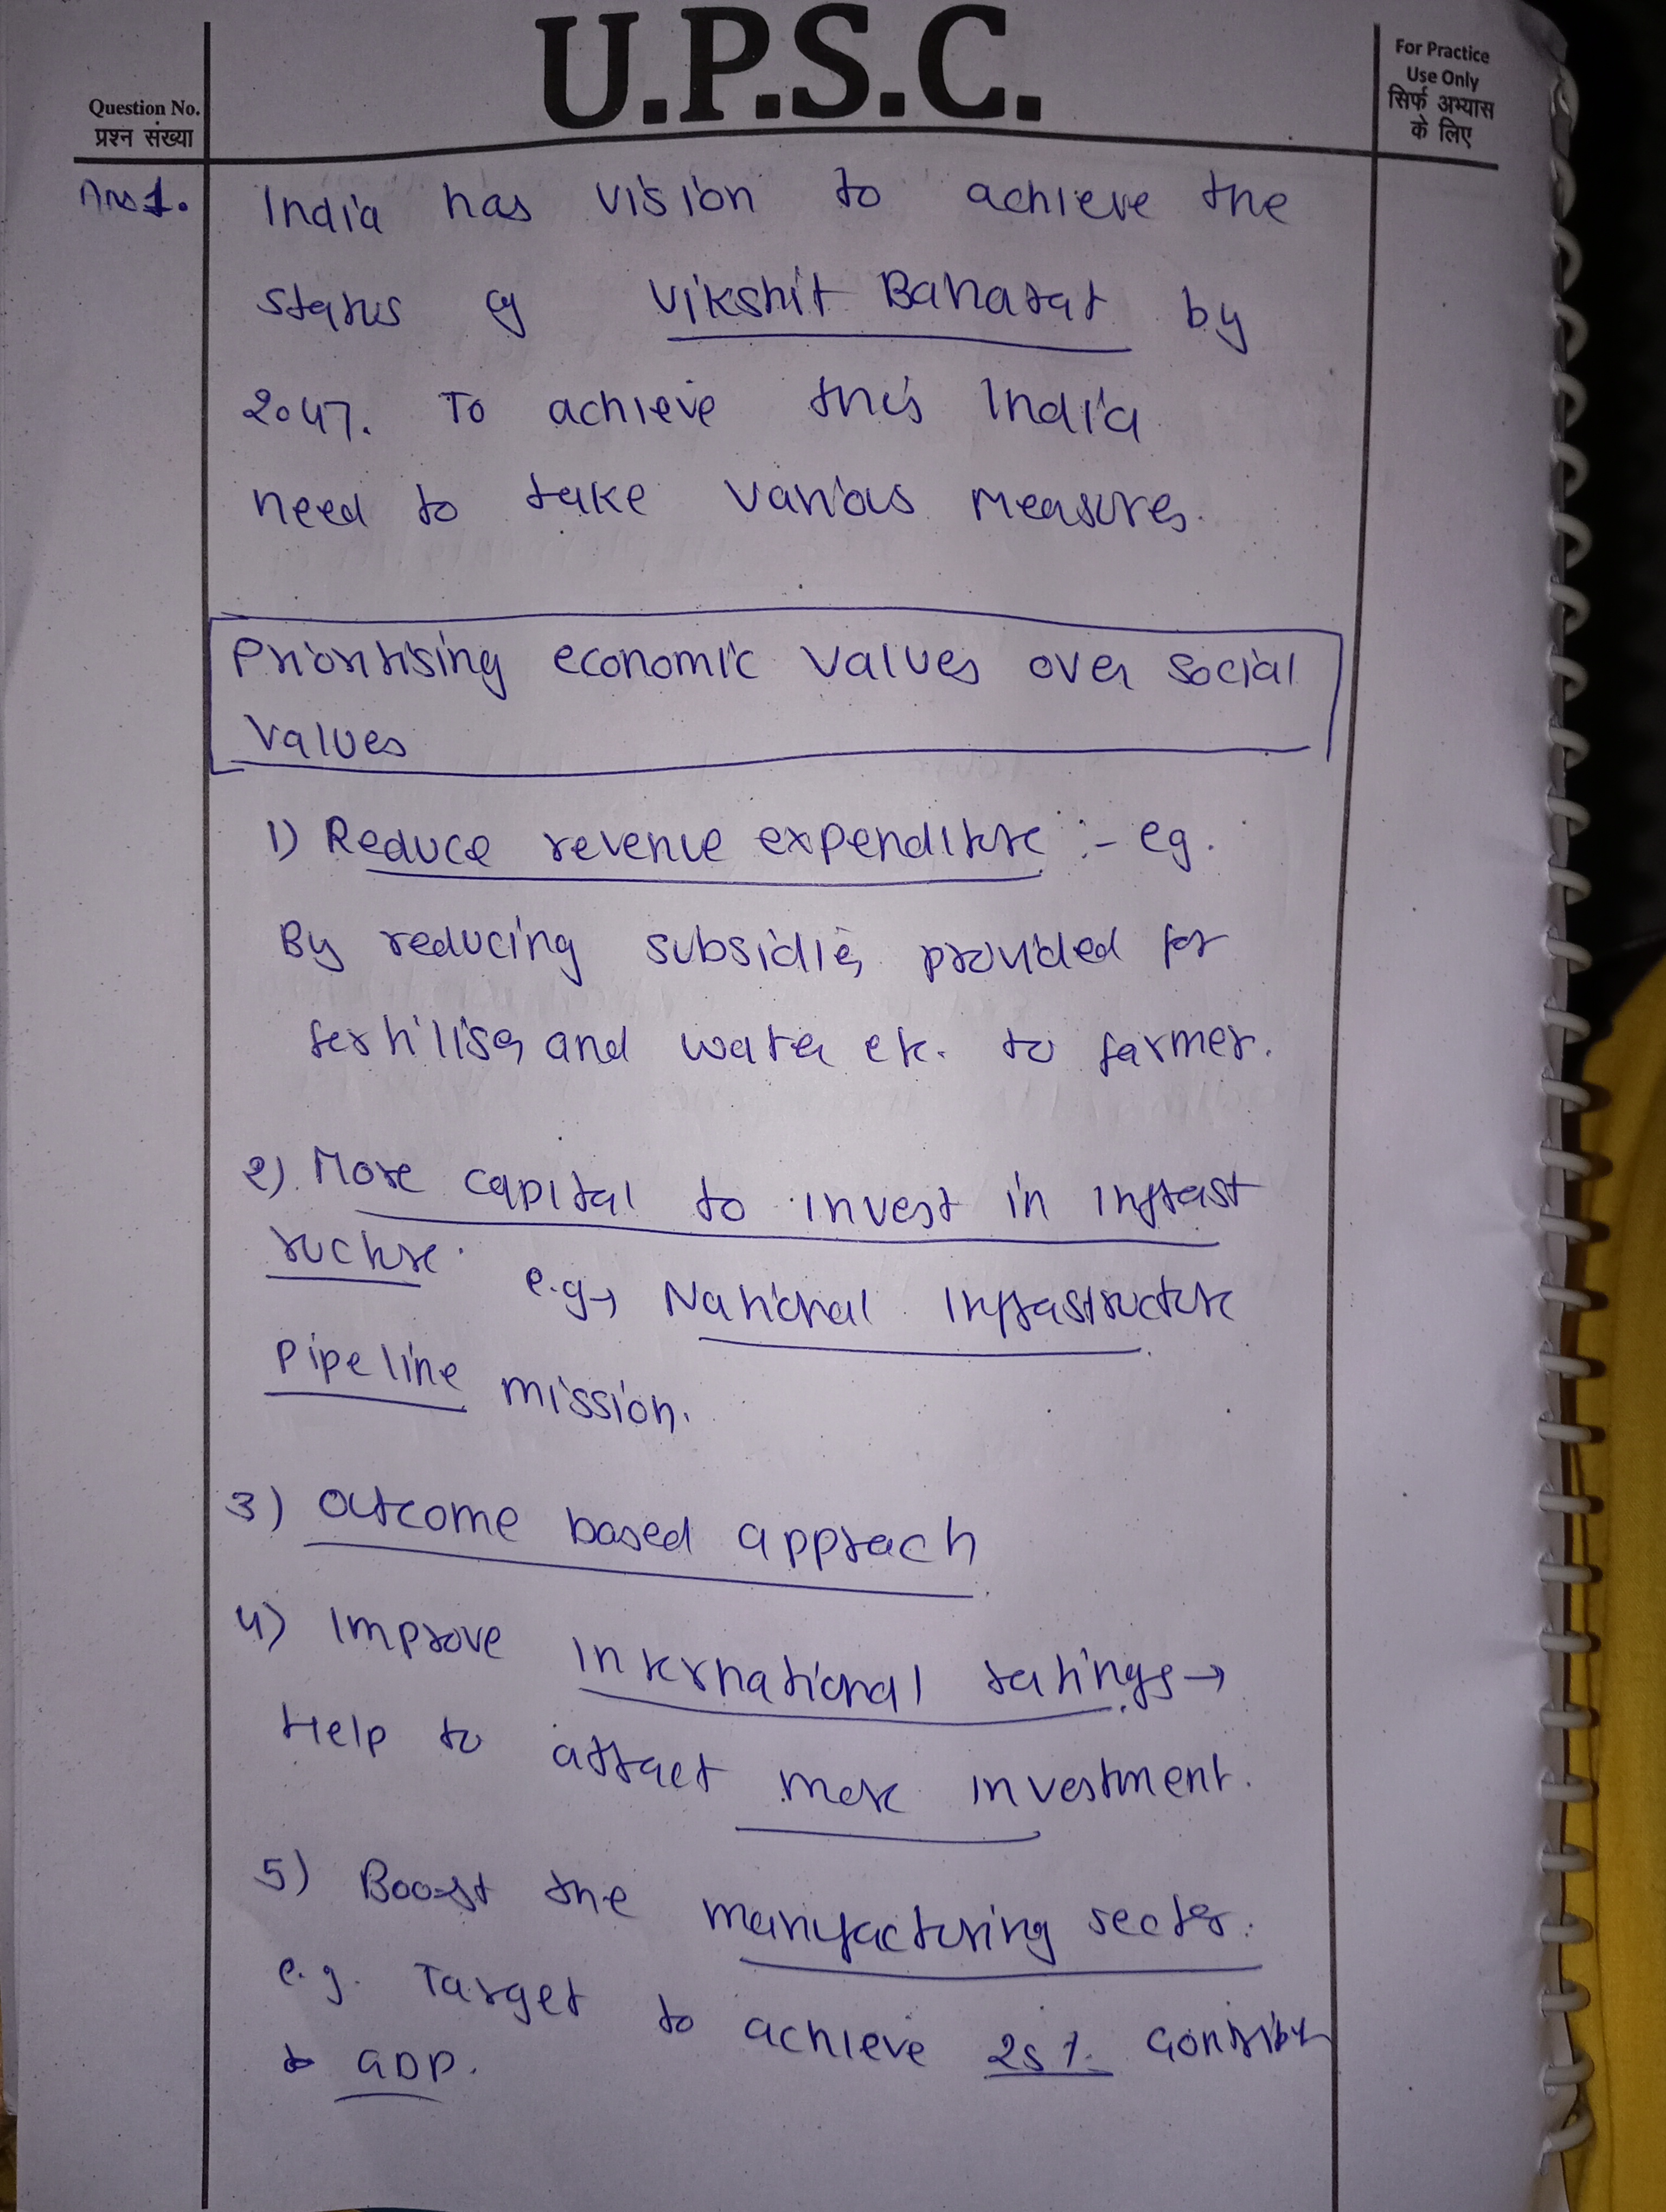 U.P.S.C.
Question No.
प्रश्न संख्या
For Practice
Use Only
सिर्फ अभ्यास
के लिए
Ans 1.
India has vision to achieve the
status of Vikshit Baharat by
2047. To achieve this India
need to take various measures.
Prioritising economic values over social
values
1) Reduce revenue expenditure :- eg.
By reducing subsidies provided for
fertiliser and water etc. to farmer.
2) More capital to invest in infrast
ructure. e.g→ National Infrastructure
Pipeline mission.
3) Outcome based approach
4) Improve International ratings →
Help to attract more investment.
5) Boost the manufacturing sector.
e.g. Target to achieve 25%
to GDP.